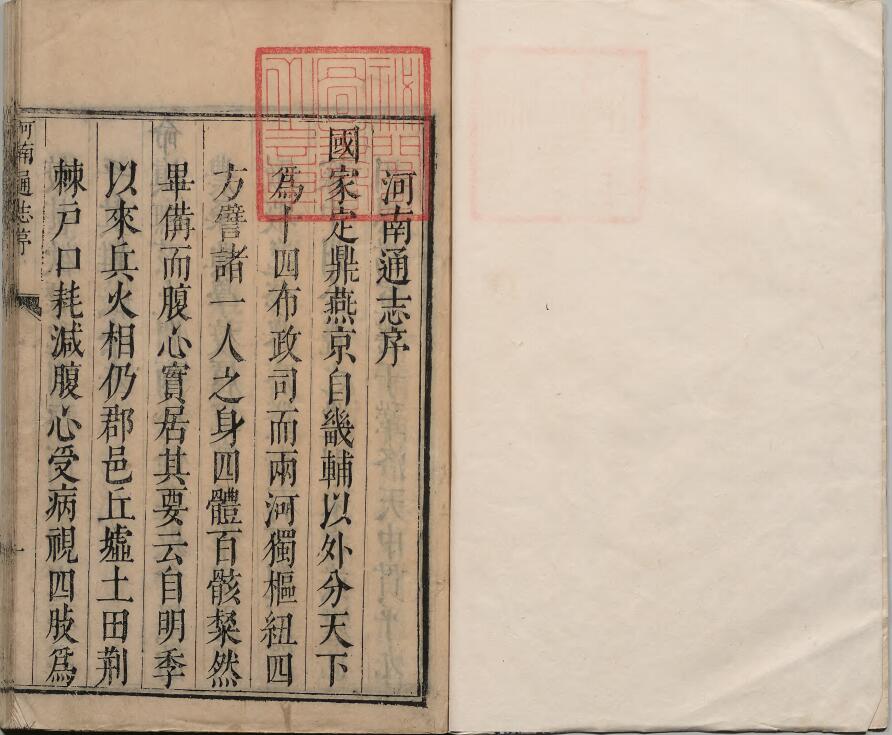 河南通志序
國家定鼎燕京自畿輔以外分天下
爲十四布政司而兩河獨樞紐四
方譬諸一人之身四體百骸粲然
畢備而腹心實居其要云自明季
以來兵火相仍郡邑丘墟土田荆
棘戶口耗減腹心受病視四肢爲
河南通志序
一